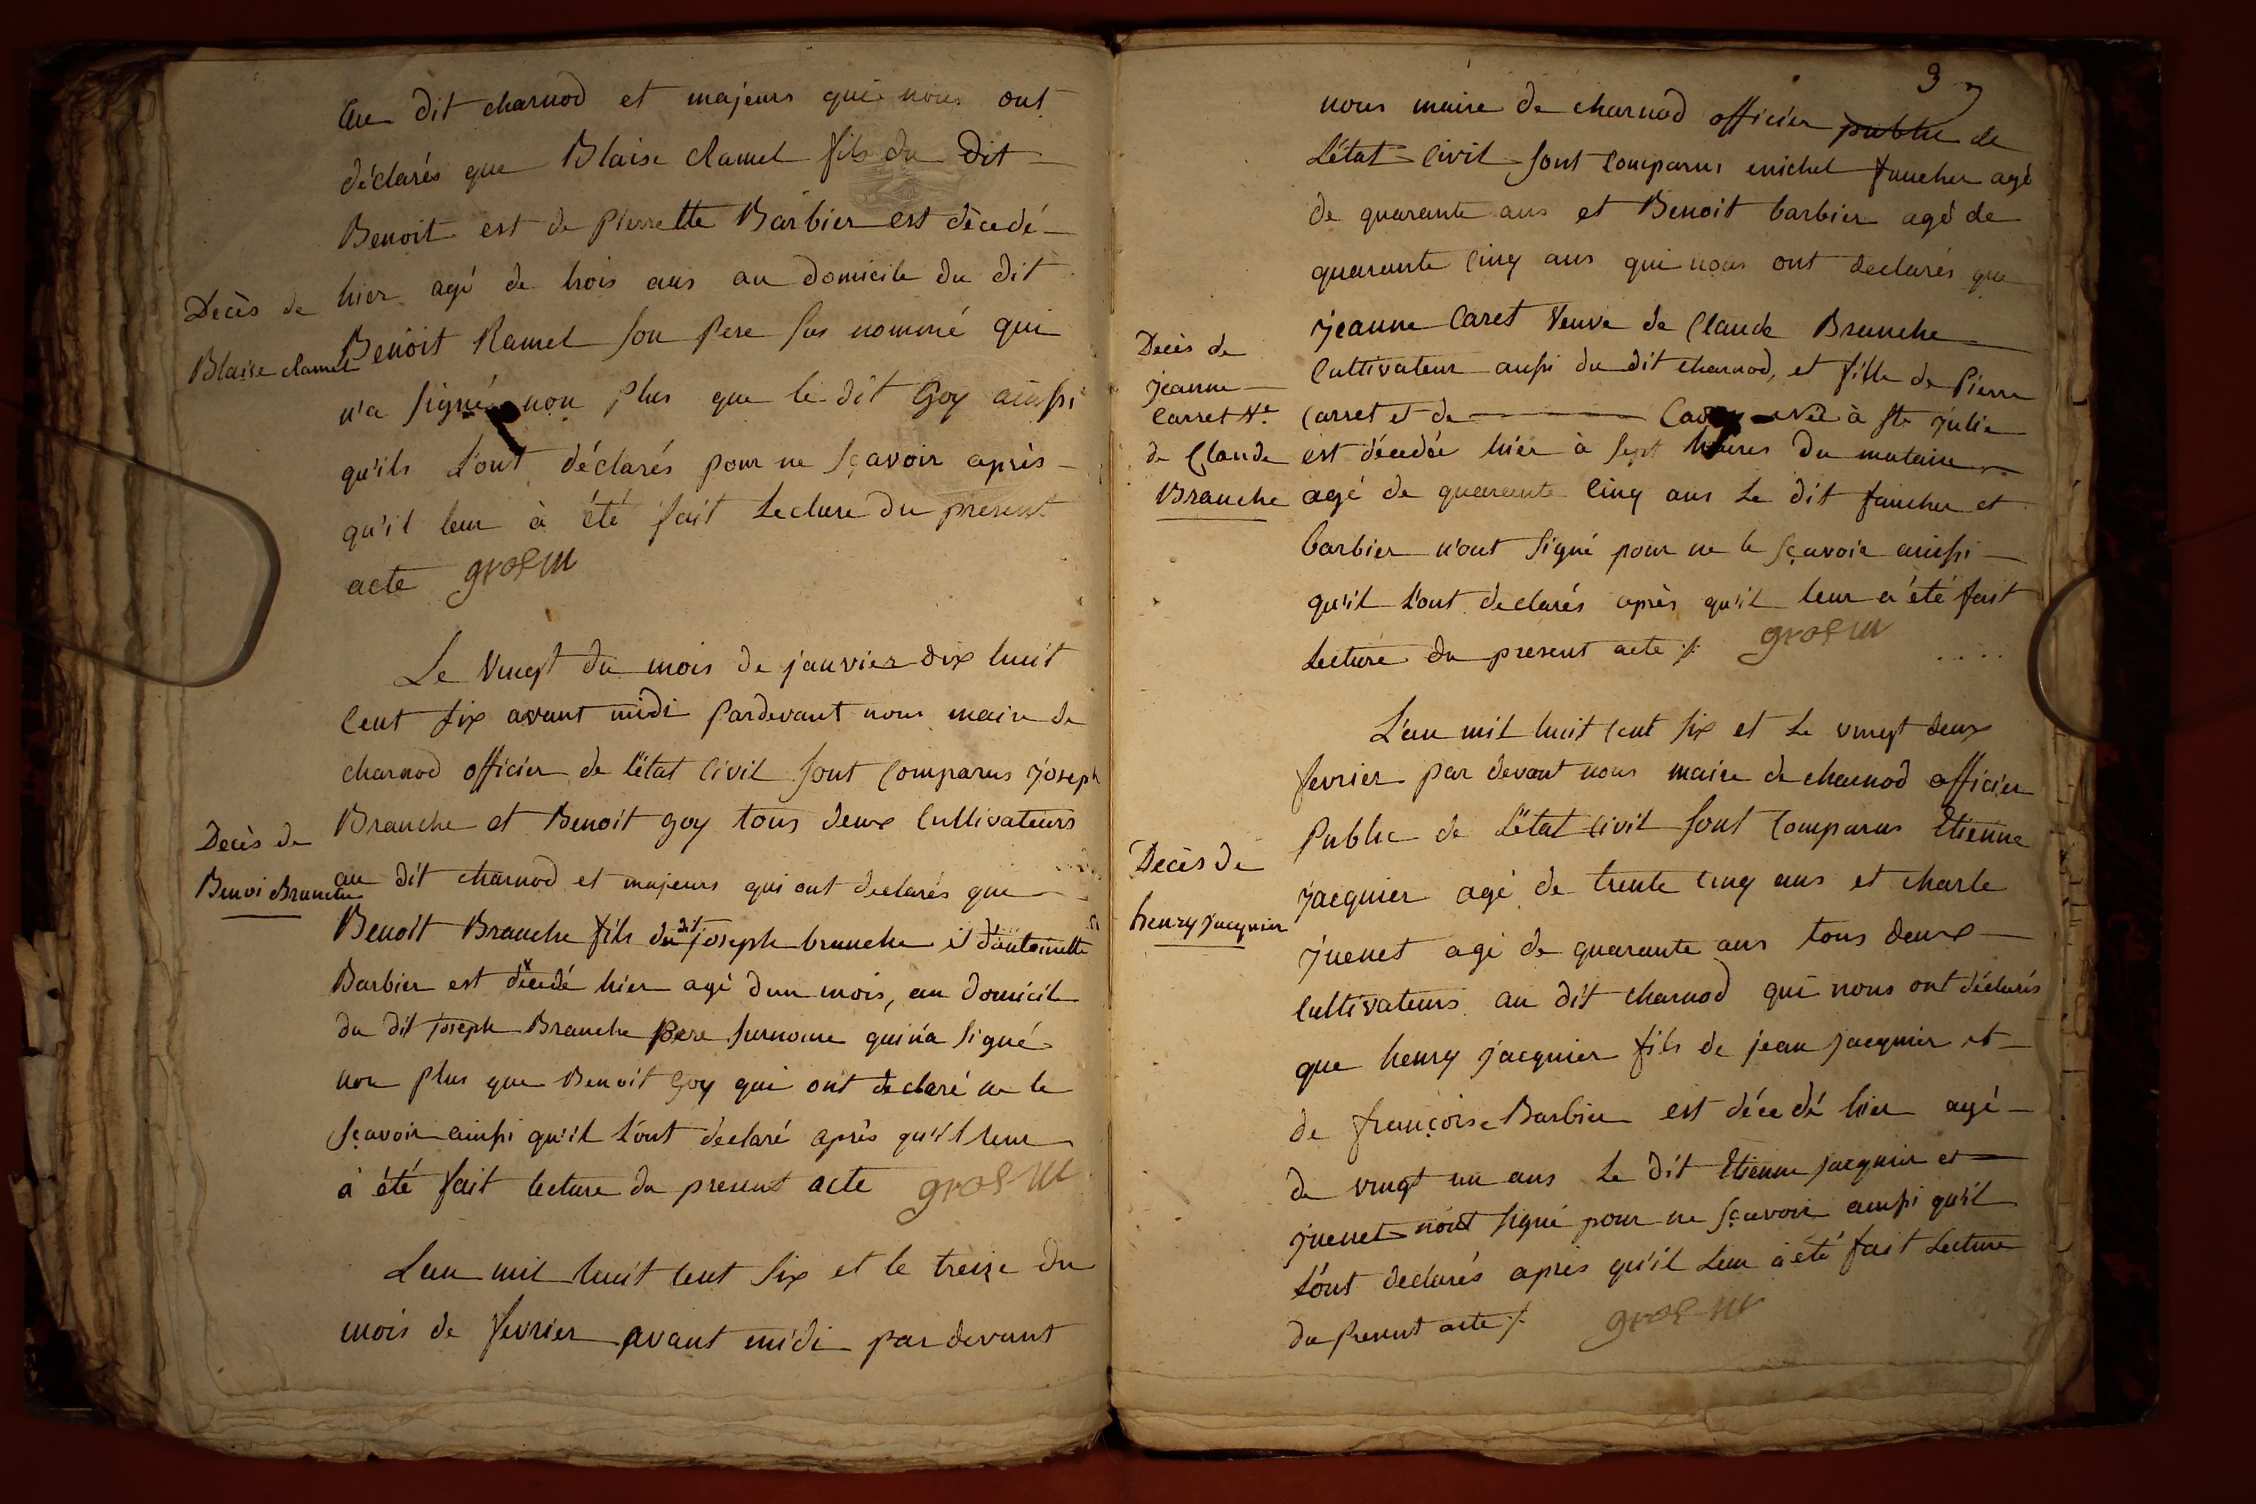 au dit charnod et majeurs qui nous ont
déclarés que Blaise Ramel fils du dit
Benoit est de Pierrette Barbier est décedé
Decès de
Blaise Ramel
hier agé de trois ans au domicile du dit
Benoit Ramel son Pere sus nommé qui
n'a signé non plus que le dit Goy ainssi
qu'ils l'ont déclarés pour ne sçavoir après
qu'il leur à été fait Lecture du présent
acte gros m
Le vingt du mois de janvier dix huit
cent six avant midi pardevant nous maire de
charnod officier de l'état civil sont comparus joseph
Branche et Benoit goy tous deux cultivateurs
Decès de
Benoi Branche
au dit charnod et majeurs qui ont declarés que
Benoit Branche fils du dit joseph branche et d'antoinette
Barbier est décedé hier agé d'un mois, au domicile
du dit joseph Branche Pere surnome qui n'a signé
non plus que Benoit Goy qui ont declaré ne le
sçavoir ainssi qu'il l'ont declaré après qu'il leur
à été fait lecture du present acte gros m
L'an mil huit cent six et le treize du
mois de fevrier avant midi par devant
3
nous maire de charnod officier public de
L'état civil sont comparus michel faucher agé
de quarante ans et Benoit barbier agé de
quarante cinq ans qui nous ont declarés que
Decès de
jeanne
Carret Ve.
de Claude
Branche
jeanne Caret veuve de Claude Branche
cultivateur aussi du dit charnod, et fille de Pierre
Carret et de née à ste julie
est décedée hier à sept heures du mataine
agé de quarante cinq ans Le dit faucher et
barbier n'ont signé pour ne le sçavoir ainssi
qu'il l'ont declarés après qu'il leur à été fait
Lecture du present acte ∕. gros m
L'an mil huit cent six et le vingt deux
fevrier par devant nous maire de charnod officier
Public de L'état civil sont comparus Etienne
Decès de
henry jacquier
jacquier agé de trente cinq ans et charle
juenet agé de quarante ans tous deux
cultivateurs au dit charnod qui nous ont déclarés
que henry jacquier fils de jean jacquier et
de françoise Barbier est décedé hier agé
de vingt un ans Le dit Etienne jacquier et
juenet n'ont signé pour ne sçavoir ainssi qu'il
l'ont declarés après qu'il Leur à été fait Lecture
du Present acte ∕. gros m